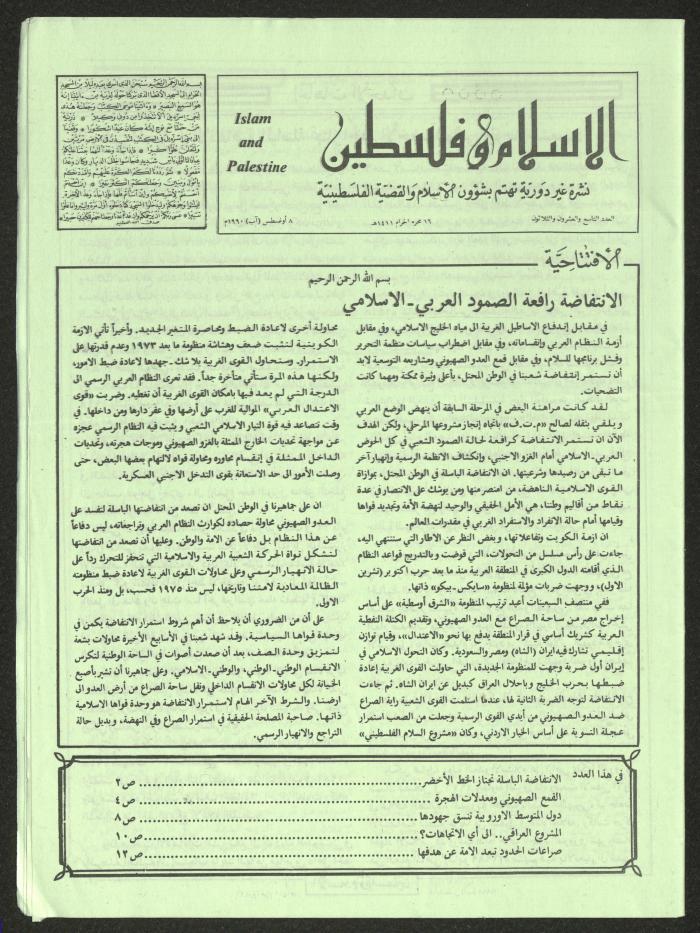 الاسلام وفلسطين
Islam
and
Palestine
نشرة غير دورية تهتم بشؤون الاسلام والقضية الفلسطينية
العدد التاسع والعشرون والثلاثون
١٦ محرم الحرام ١٤١١هـ
٨ أوغسطس (آب) ١٩٩٠م
الافتتاحية
بسم الله الرحمن الرحيم
الانتفاضة رافعة الصمود العربي - الاسلامي
في مقابل إندفاع الاساطيل الغربية الى مياه الخليج الاسلامي، وفي مقابل
أزمة النظام العربي وإنقساماته، وفي مقابل اضطراب سياسات منظمة التحرير
وفشل برنامجها للسلام، وفي مقابل قمع العدو الصهيوني ومشاريعه التوسعية لابد
أن تستمر إنتفاضة شعبنا في الوطن المحتل، بأعلى وتيرة ممكنة ومهما كانت
التضحيات.
لقد كانت مراهنة البعض في المرحلة السابقة أن ينهض الوضع العربي
ويلقي بثقله لصالح «م.ت.ف» باتجاه إنجاز مشروعها المرحلي، ولكن الهدف
الآن ان تستمر الانتفاضة كرافعة لحالة الصمود الشعبي في كل الحوض
العربي-الاسلامي أمام الغزو الاجنبي، وإنكشاف الانظمة الرسمية وإنهيار آخر
ما تبقى من رصيدها وشرعيتها. ان الانتفاضة الباسلة في الوطن المحتل، بموازاة
القوى الاسلامية الناهضة، من انتصر منها ومن يوشك على الانتصار في عدة
نقاط من أقاليم وطننا، هي الأمل الحقيقي والوحيد لنهضة الأمة وتجديد قواها
وقيامها أمام حالة الانفراد والاستفراد الغربي في مقدرات العالم.
ان ازمة الكويت وتفاعلاتها، وبغض النظر عن الاطار التي ستنتهي اليه،
جاءت على رأس مسلسل من التحولات، التي قوضت وبالتدريج قواعد النظام
الذي أقامته الدول الكبرى في المنطقة العربية منذ ما بعد حرب اكتوبر (تشرين
الاول)، ووجهت ضربات مؤلمة لمنظومة «سايكس-بيكو» ذاتها.
ففي منتصف السبعينات أعيد ترتيب المنظومة «الشرق أوسطية» على أساس
إخراج مصر من ساحة الصراع مع العدو الصهيوني، وتقديم الكتلة النفطية
العربية كشريك أساسي في قرار المنطقة يدفع بها نحو «الاعتدال»، وقيام توازن
إقليمي تشارك فيه ايران (الشاه) ومصر والسعودية. وكان التحول الاسلامي في
إيران أول ضربة وجهت للمنظومة الجديدة، التي حاولت القوى الغربية إعادة
ضبطها بحرب الخليج وباحلال العراق كبديل عن ايران الشاه. ثم جاءت
الانتفاضة لتوجه الضربة الثانية لها، عندما استلمت القوى الشعبية راية الصراع
ضد العدو الصهيوني من أيدي القوى الرسمية وجعلت من الصعب استمرار
عجلة التسوية على أساس الخيار الاردني، وكان «مشروع السلام الفلسطيني»
محاولة أخرى لاعادة الضبط ومحاصرة المتغير الجديد. وأخيراً تأتي الازمة
الكويتية لتثبت ضعف وهشاشة منظومة ما بعد ١٩٧٣ وعدم قدرتها على
الاستمرار. وستحاول القوى الغربية بلا شك-جهدها لاعادة ضبط الامور،
ولكنها هذه المرة ستأتي متأخرة جداً. فقد تعرى النظام العربي الرسمي الى
الدرجة التي لم يعد فيها بامكان القوى الغربية أن تغطيه. وضربت «قوى
الاعتدال العربي» الموالية للغرب على أرضها وفي عقر دارها ومن داخلها. في
وقت تتصاعد فيه قوة التيار الاسلامي الشعبي ويثبت فيه النظام الرسمي عجزه
عن مواجهة تحديات الخارج الممثلة بالغزو الصهيوني وموجات هجرته، وتحديات
الداخل الممثلة في إنقسام محاوره ومحاولة قواه لالتهام بعضها البعض، حتى
وصلت الأمور الى حد الاستعانة بقوى التدخل الاجنبي العسكرية.
ان على جماهيرنا في الوطن المحتل ان تصعد من انتفاضتها الباسلة لتفسد على
العدو الصهيوني محاولة حصاده لكوارث النظام العربي وتراجعاته، ليس دفاعاً
عن هذا النظام بل دفاعاً عن الامة والوطن. وعليها أن تصعد من انتفاضتها
لتشكل نواة الحركة الشعبية العربية والاسلامية التي تتحفز للتحرك رداً على
حالة الانهيار الرسمي وعلى محاولات القوى الغربية لاعادة ضبط منظومته
الظالمة المعادية لامتنا وتاريخها، ليس منذ ١٩٧٥ فحسب، بل ومنذ الحرب
الاولى.
على أن من الضروري أن يلاحظ أن أهم شروط استمرار الانتفاضة يكمن في
وحدة قواها السياسية. وقد شهد شعبنا في الأسابيع الأخيرة محاولات بشعة
لتمزيق وحدة الصف، بعد أن صعدت أصوات في الساحة الوطنية لتكرس
الانقسام الوطني-الوطني، والوطني-الاسلامي. وعلى جماهيرنا أن تشير بأصبع
الخيانة لكل محاولات الانقسام الداخلي ونقل ساحة الصراع من أرض العدو الى
ارضنا. والشرط الآخر الهام لاستمرار الانتفاضة هو وحدة قواها الاسلامية
ذاتها. صاحبة المصلحة الحقيقية في استمرار الصراع وفي النهضة، وبديل حالة
التراجع والانهيار الرسمي.
في هذا العدد
الانتفاضة الباسلة تجتاز الخط الأخضر ص٢
القمع الصهيوني ومعدلات الهجرة ص٤
دول المتوسط الاوروبية تنسق جهودها ص٨
المشروع العراقي.. الى أي الاتجاهات؟ ص١٠
صراعات الحدود تبعد الامة عن هدفها ص١٢